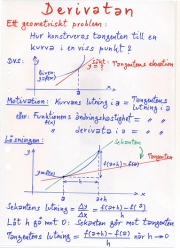 Derivatan
Ett geometriskt problem:
Hur konstrueras tangenten till en
kurva i en viss punkt?
DVS:
Sökt: Tangentens ekvation
y = ?
Given:
y=f(x)
a
x
Motivation: Kurvans lutning i a = Tangentens lutning i a
eller: Funktionens förändringshastighet = "
" derivata i a = "
Lösningen:
Sekanten
Tangenten
y=f(x)
f(a+h)-f(a)
h
a
a+h
x
Sekantens lutning = Δy/Δx = f(a+h)-f(a)/h
Låt h gå mot 0: Sekanten går mot tangenten
Tangentens lutning = f(a+h)-f(a)/h när h→0